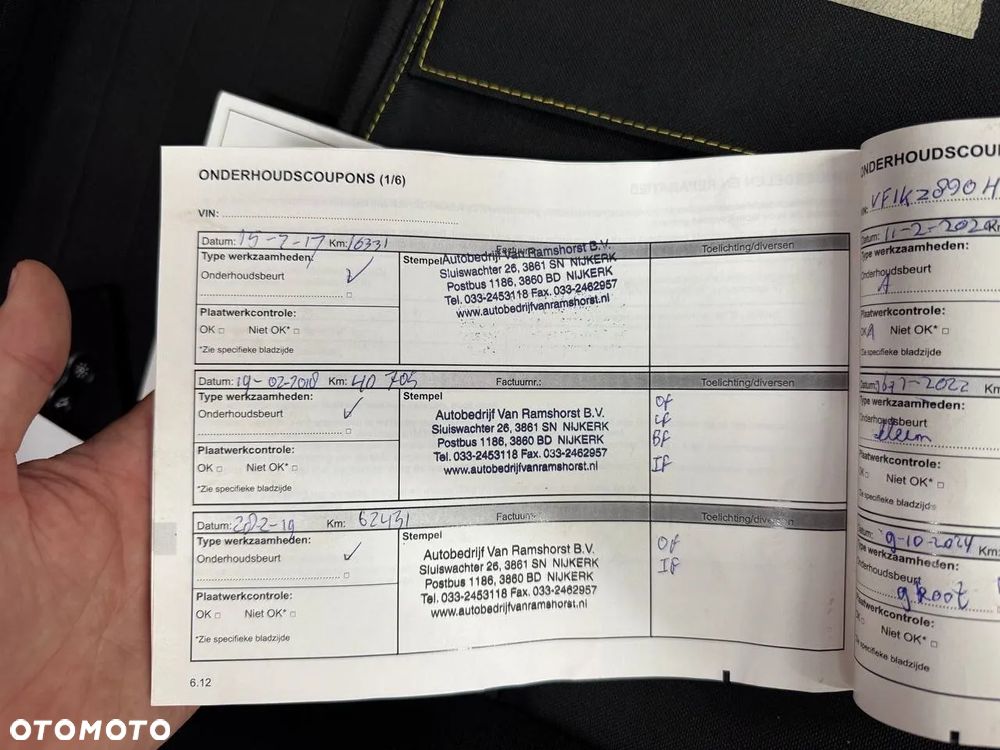 ONDERHOUDSCOUPONS (1/6)
VIN:
Datum: 15-2-17 Km: 16331
Type werkzaamheden:
Onderhoudsbeurt
Plaatwerkcontrole:
OK Niet OK*
*Zie specifieke bladzijde
Stempel
Autobedrijf Van Ramshorst B.V.
Sluiswachter 26, 3861 SN NIJKERK
Postbus 1186, 3860 BD NIJKERK
Tel. 033-2453118 Fax. 033-2462957
www.autobedrijfvanramshorst.nl
Toelichting/diversen
Datum: 19-02-2018 Km: 40 705 Factuurnr.: Toelichting/diversen
Type werkzaamheden:
Onderhoudsbeurt
Plaatwerkcontrole:
OK Niet OK*
*Zie specifieke bladzijde
Stempel
Autobedrijf Van Ramshorst B.V.
Sluiswachter 26, 3861 SN NIJKERK
Postbus 1186, 3860 BD NIJKERK
Tel. 033-2453118 Fax. 033-2462957
www.autobedrijfvanramshorst.nl
OF
LF
BF
IF
Datum: Km: 62431 Toelichting/diversen
Type werkzaamheden:
Onderhoudsbeurt
Plaatwerkcontrole:
OK Niet OK*
*Zie specifieke bladzijde
Stempel
Autobedrijf Van Ramshorst B.V.
Sluiswachter 26, 3861 SN NIJKERK
Postbus 1186, 3860 BD NIJKERK
Tel. 033-2453118 Fax. 033-2462957
www.autobedrijfvanramshorst.nl
OF
IF
6.12
ONDERHOUDSCOU
VF1KZ890H
Datum: 11-2-2020
Type werkzaamheden:
Onderhoudsbeurt
A
Plaatwerkcontrole:
OK Niet OK*
*Zie specifieke bladzijde
Datum: -2022 Km
Type werkzaamheden:
Onderhoudsbeurt
klein
Plaatwerkcontrole:
Niet OK*
Zie specifieke bladzijde
Datum: 9-10-2024 Km:
Type werkzaamheden:
Onderhoudsbeurt
groot
Plaatwerkcontrole:
Niet OK*
*Zie specifieke bladzijde
OTOMOTO